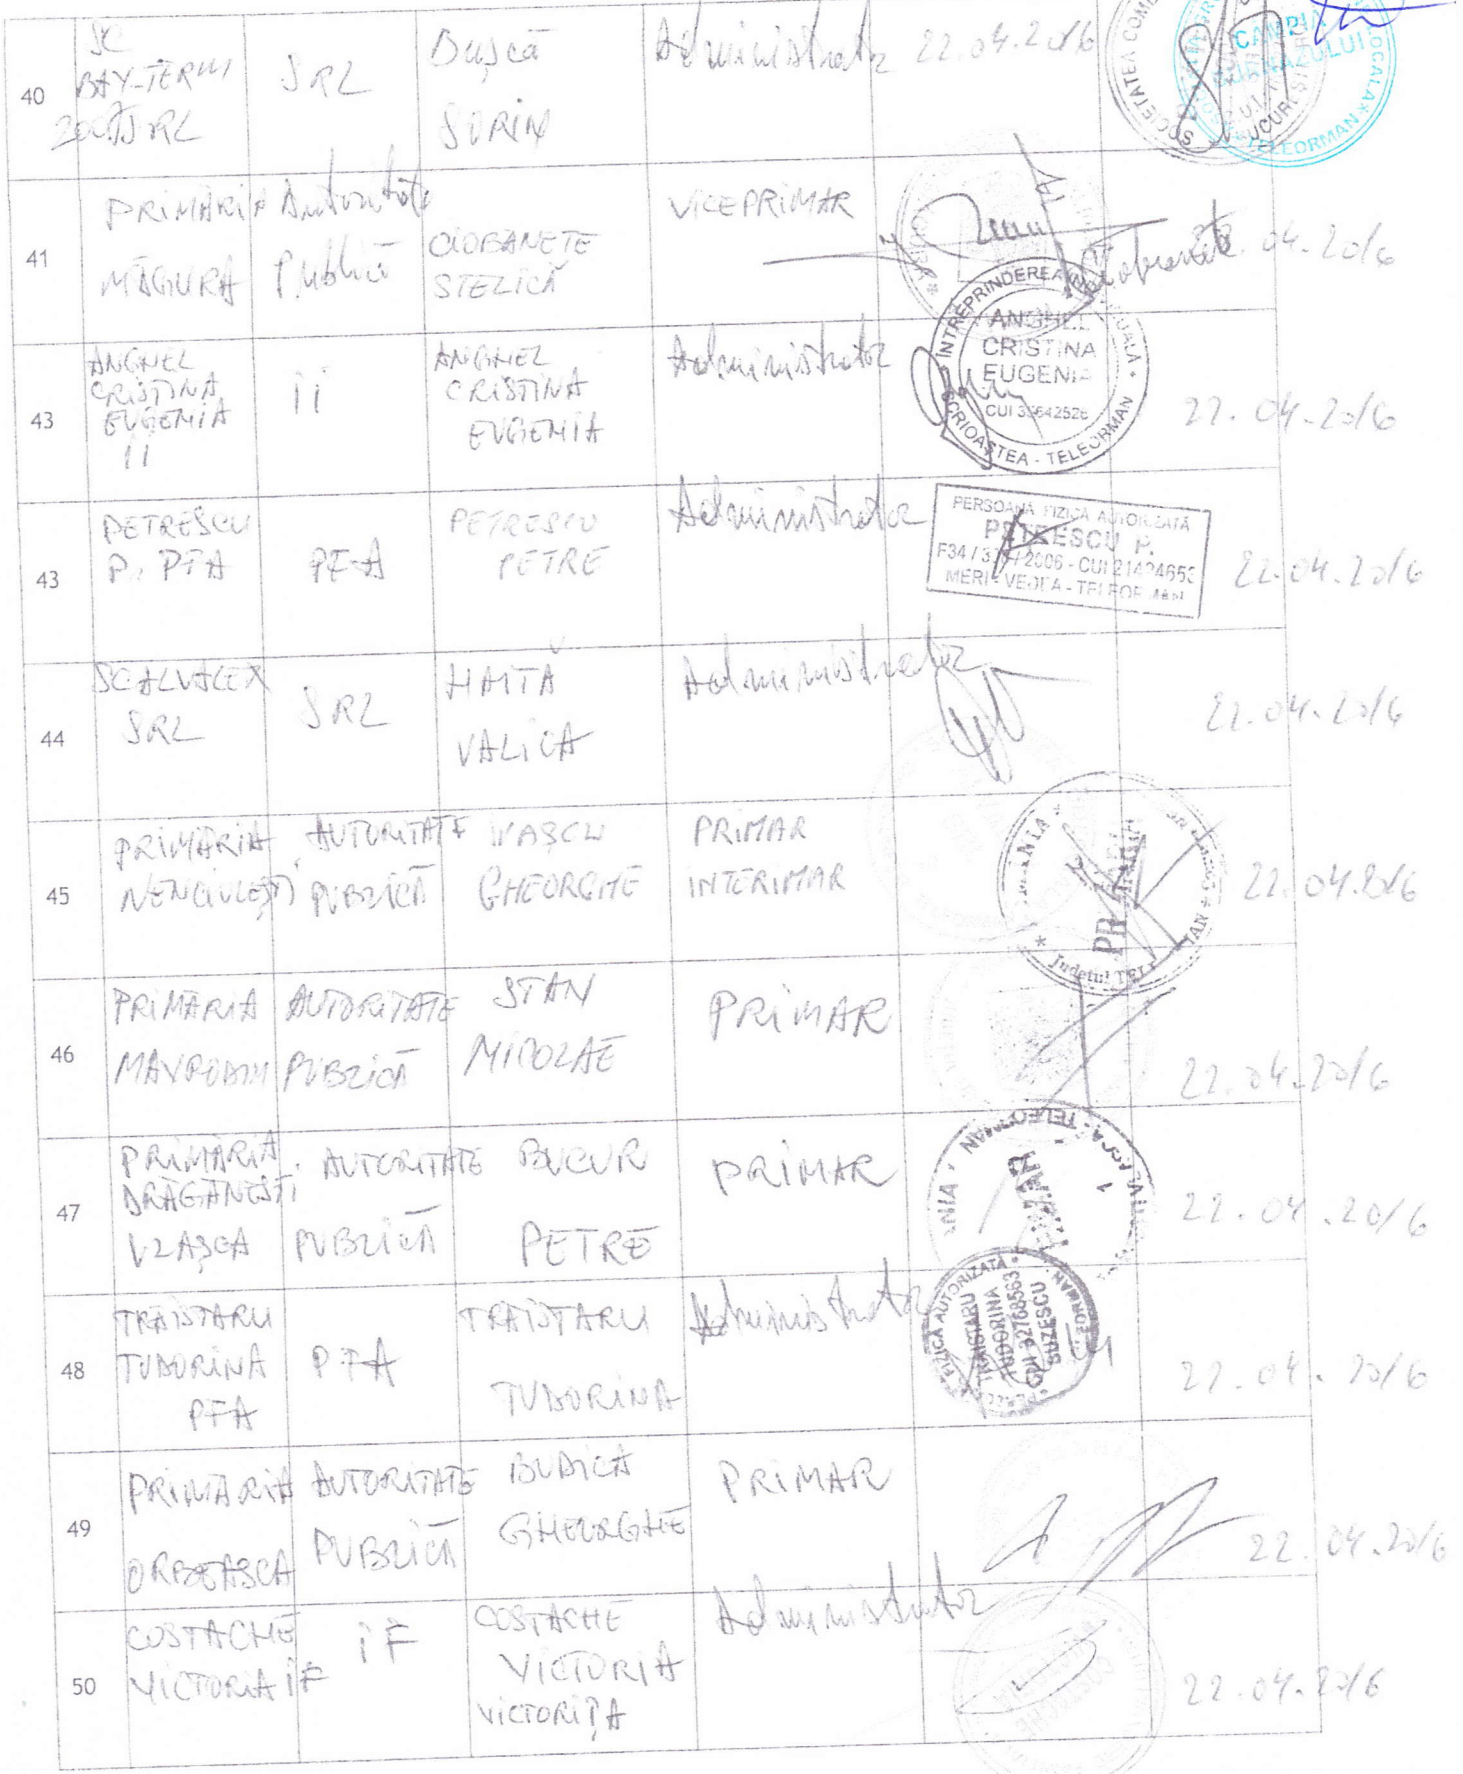 40 SC BAY-TERM 2007 SRL SRL Dușcă SORIN Administrator 22.04.2016
SOCIETATEA COM
CÂMPIA
BURNAZULUI
TELEORMAN
41 PRIMĂRIA MĂGURA Autoritate Publică CIOBANETE STELICĂ VICEPRIMAR 04.2016
43 ANGHEL CRISTINA EUGENIA II II ANGHEL CRISTINA EUGENIA Administrator 22.04.2016
ÎNTREPRINDEREA
ANGHEL
CRISTINA
EUGENIA
CUI 35642526
SCRIOAȘTEA - TELEORMAN
43 PETRESCU P. PFA PFA PETRESCU PETRE Administrator 22.04.2016
PERSOANĂ FIZICĂ AUTORIZATĂ
PETRESCU P.
MERI - VEDEA - TELEORMAN
44 SC ALVALEX SRL SRL HAITĂ VALICA Administrator 22.04.2016
45 PRIMĂRIA NENCIULEȘTI AUTORITATE PUBLICĂ VAȘCU GHEORGHE PRIMAR INTERIMAR 22.04.2016
Județul
46 PRIMĂRIA MAVRODIN AUTORITATE PUBLICĂ STAN NICOLAE PRIMAR 22.04.2016
47 PRIMĂRIA DRĂGĂNEȘTI VLAȘCA AUTORITATE PUBLICĂ BUCUR PETRE PRIMAR 22.04.2016
48 TRĂISTARU TUDORINA PFA PFA TRĂISTARU TUDORINA Administrator 22.04.2016
FIZICĂ AUTORIZATĂ
TRAISTARU
TUDORINA
CUI 32768563
BUZESCU
49 PRIMĂRIA ORBEASCA AUTORITATE PUBLICĂ BUDICĂ GHEORGHE PRIMAR 22.04.2016
50 COSTACHE VICTORIA IF IF COSTACHE VICTORIA VICTORIȚA Administrator 22.04.2016